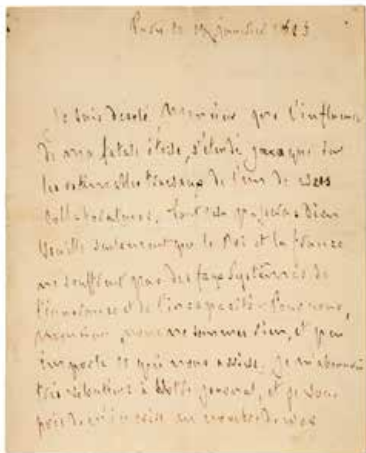 Paris le janvier
Je suis désolé, Monsieur que l'influence
de ma fatale étoile, s'étende jusque sur
les estimables travaux de l'un de vos
collaborateurs. Dieu
veuille seulement que le Roi et la France
ne souffrent pas des faux systèmes de
l'ignorance et de l'incapacité. Pour nous,
Monsieur, nous ne sommes rien, et peu
importe ce qui nous arrive. Je m'abonne
très volontiers à votre journal, et je vous
prie de m'inscrire au nombre de vos